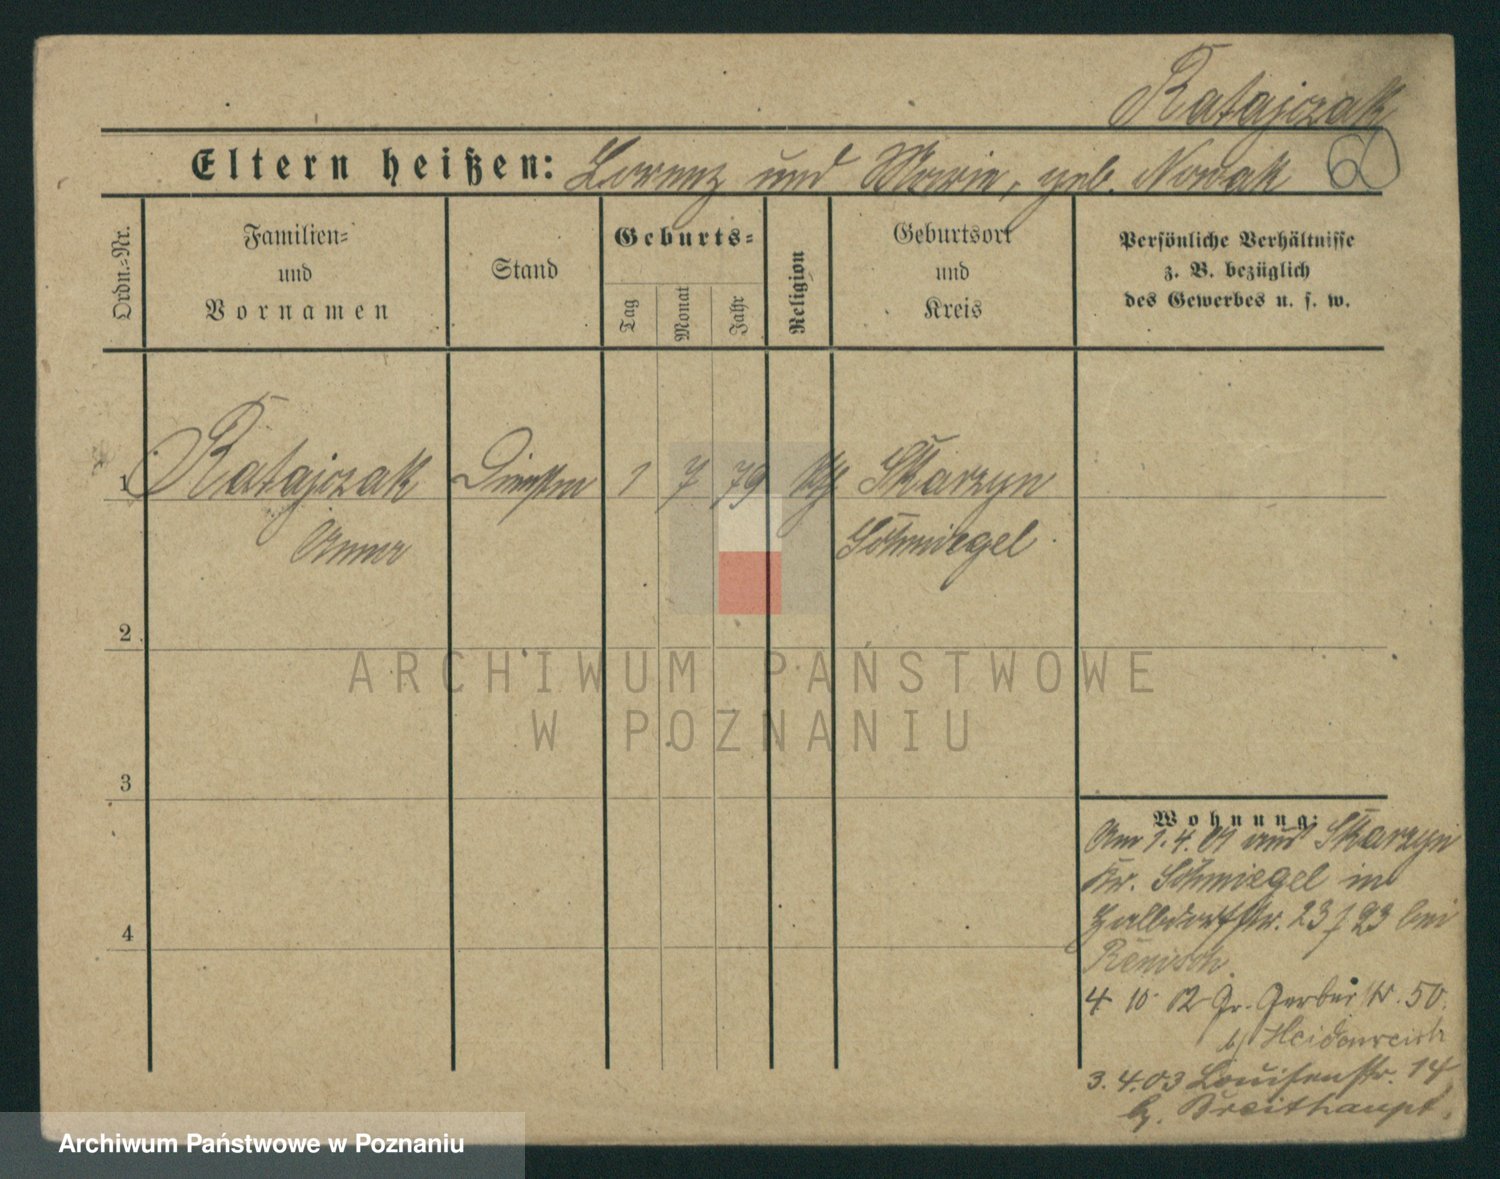 Ratajczak
Eltern heißen: Lorenz und Marie, geb. Nowak
60
Ordn.-Nr.
Familien-
und
Vornamen
Stand
Geburts-
Tag
Monat
Jahr
Religion
Geburtsort
und
Kreis
Persönliche Verhältnisse
z. B. bezüglich
des Gewerbes u. s. w.
1 Ratajczak 1 7 79 Skarzyn
Anna Schmiegel
2
3
4
ARCHIWUM PAŃSTWOWE
W POZNANIU
Wohnung:
Am 1. 4. 01 aus Skarzyn
Kr. Schmiegel in
Halbdorfstr. 23 / 23 bei
4 10 02 Gr. Gerberstr. 50
b/ Heidenreich
3. 4. 03 Louisenstr. 14
b. Breithaupt.
Archiwum Państwowe w Poznaniu